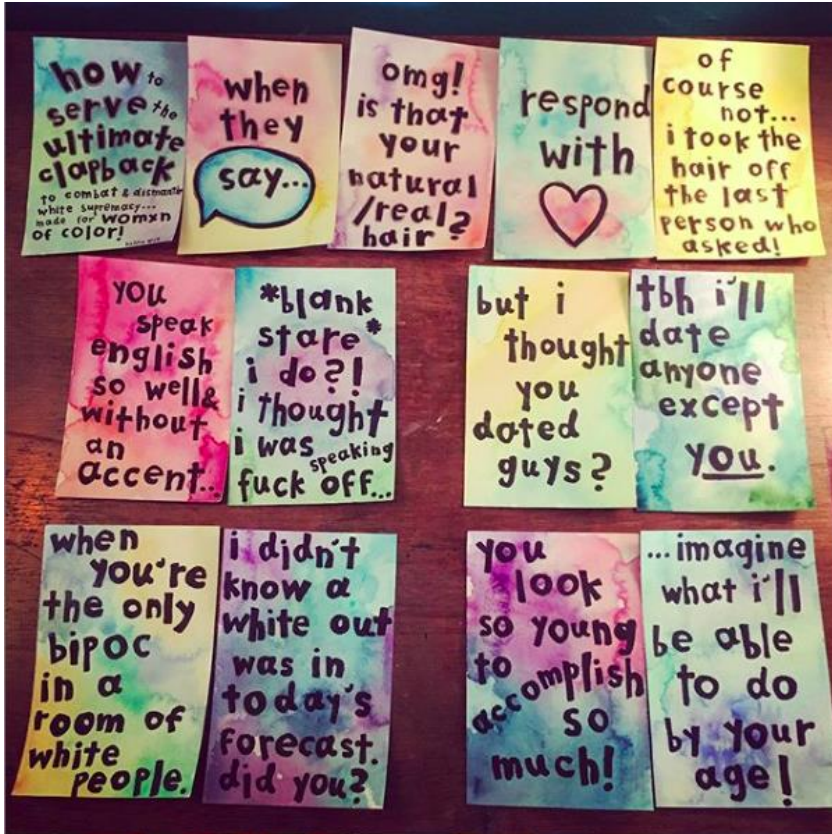 how to
serve the
ultimate
clapback
to combat & dismantle
white supremacy...
made for womxn
of color!
when
they
say...
omg!
is that
your
natural
/real
hair?
respond
with
of
course
not...
i took the
hair off
the last
person who
asked!
you
speak
english
so well&
without
an
accent...
*blank
stare*
i do?!
i thought
i was speaking
fuck off...
but i
thought
you
dated
guys?
tbh i'll
date
anyone
except
you.
when
you're
the only
bipoc
in a
room of
white
people.
i didn't
know a
white out
was in
today's
forecast.
did you?
you
look
so young
to
accomplish
so
much!
...imagine
what i'll
be able
to do
by your
age!